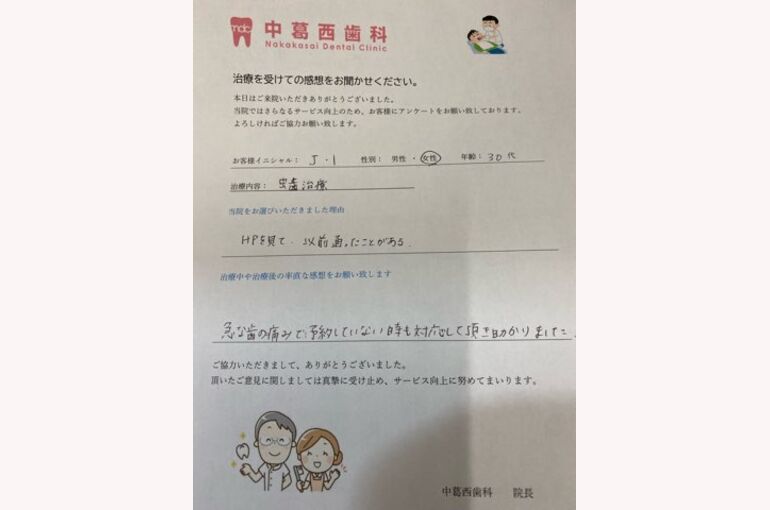 ndc 中葛西歯科
Nakakasai Dental Clinic
治療を受けての感想をお聞かせください。
本日はご来院いただきありがとうございました。
当院ではさらなるサービス向上のため、お客様にアンケートをお願い致しております。
よろしければご協力お願い致します。
お客様イニシャル： J・I 性別： 男性 ・ 女性 年齢： 30 代
治療内容： 虫歯治療
当院をお選びいただきました理由
HPを見て、以前通ったことがある。
治療中や治療後の率直な感想をお願い致します
急な歯の痛みで予約していない時も対応して頂き助かりました。
ご協力いただきまして、ありがとうございました。
頂いたご意見に関しましては真摯に受け止め、サービス向上に努めてまいります。
中葛西歯科 院長